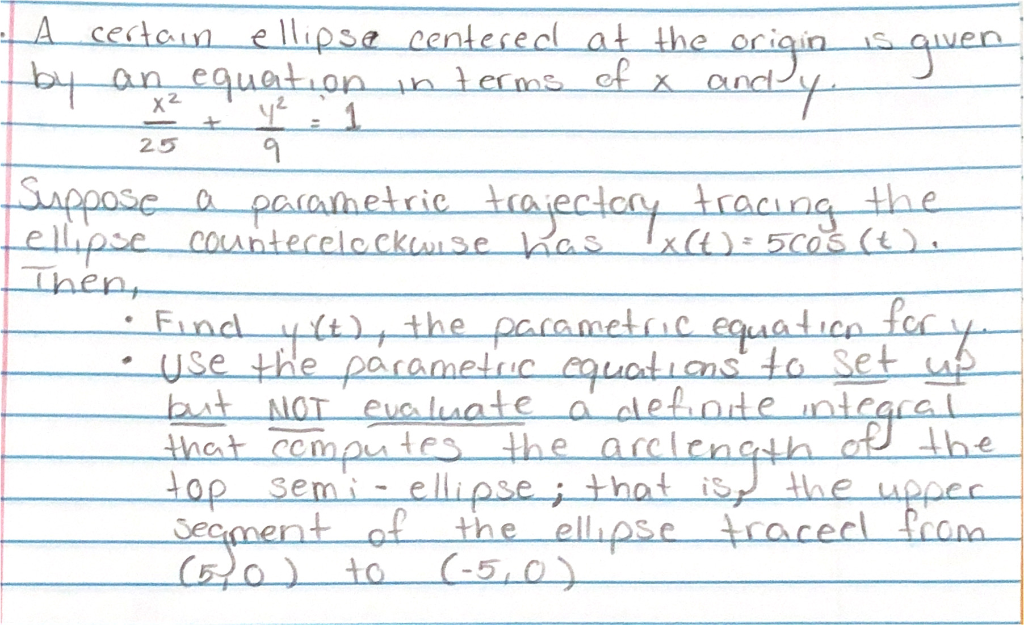 . A certain ellipse centered at the origin is given
by an equation in terms of x and y.
x²/25 + y²/9 = 1
Suppose a parametric trajectory tracing the
ellipse counterclockwise has x(t) = 5cos(t).
Then,
• Find y(t), the parametric equation for y.
• Use the parametric equations to set up
but NOT evaluate a definite integral
that computes the arclength of the
top semi-ellipse; that is, the upper
segment of the ellipse traced from
(5,0) to (-5,0)